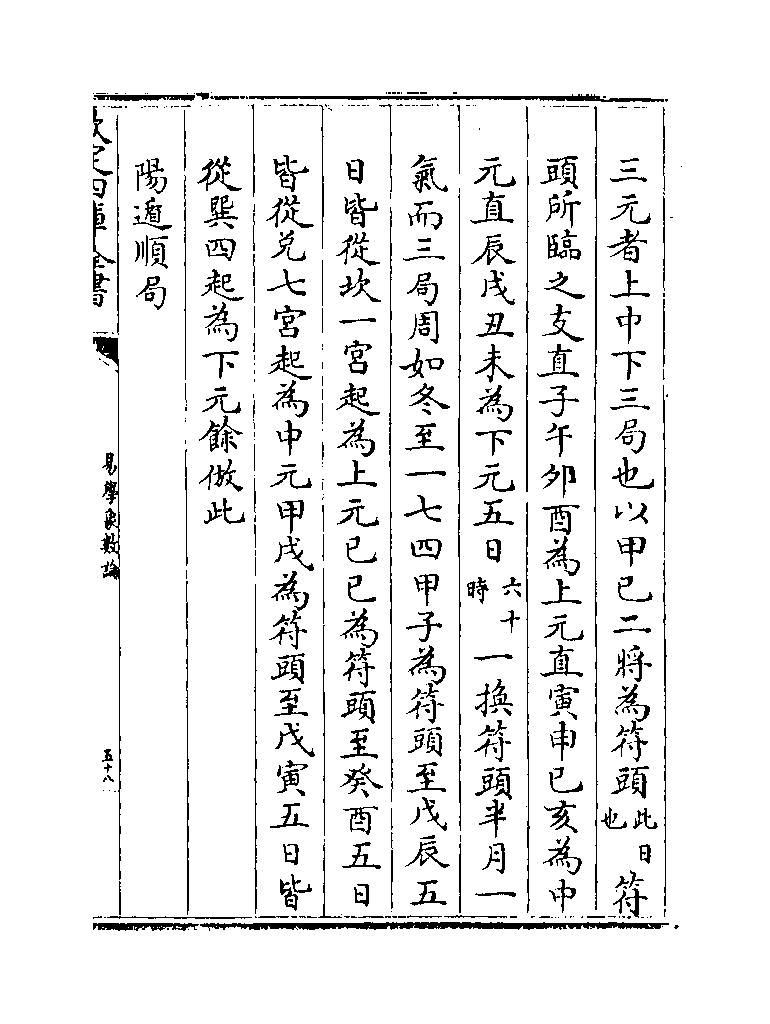 三元者上中下三局也以甲已二將為符頭此日也符
頭所臨之支直子午卯酉為上元直寅申巳亥為中
元直辰戌丑未為下元五日六十時一換符頭半月一
氣而三局周如冬至一七四甲子為符頭至戊辰五
日皆從坎一宮起為上元已巳為符頭至癸酉五日
皆從兑七宮起為中元甲戌為符頭至戊寅五日皆
從巽四起為下元餘倣此
陽遁順局
欽定四庫全書
易學象數論
五十八